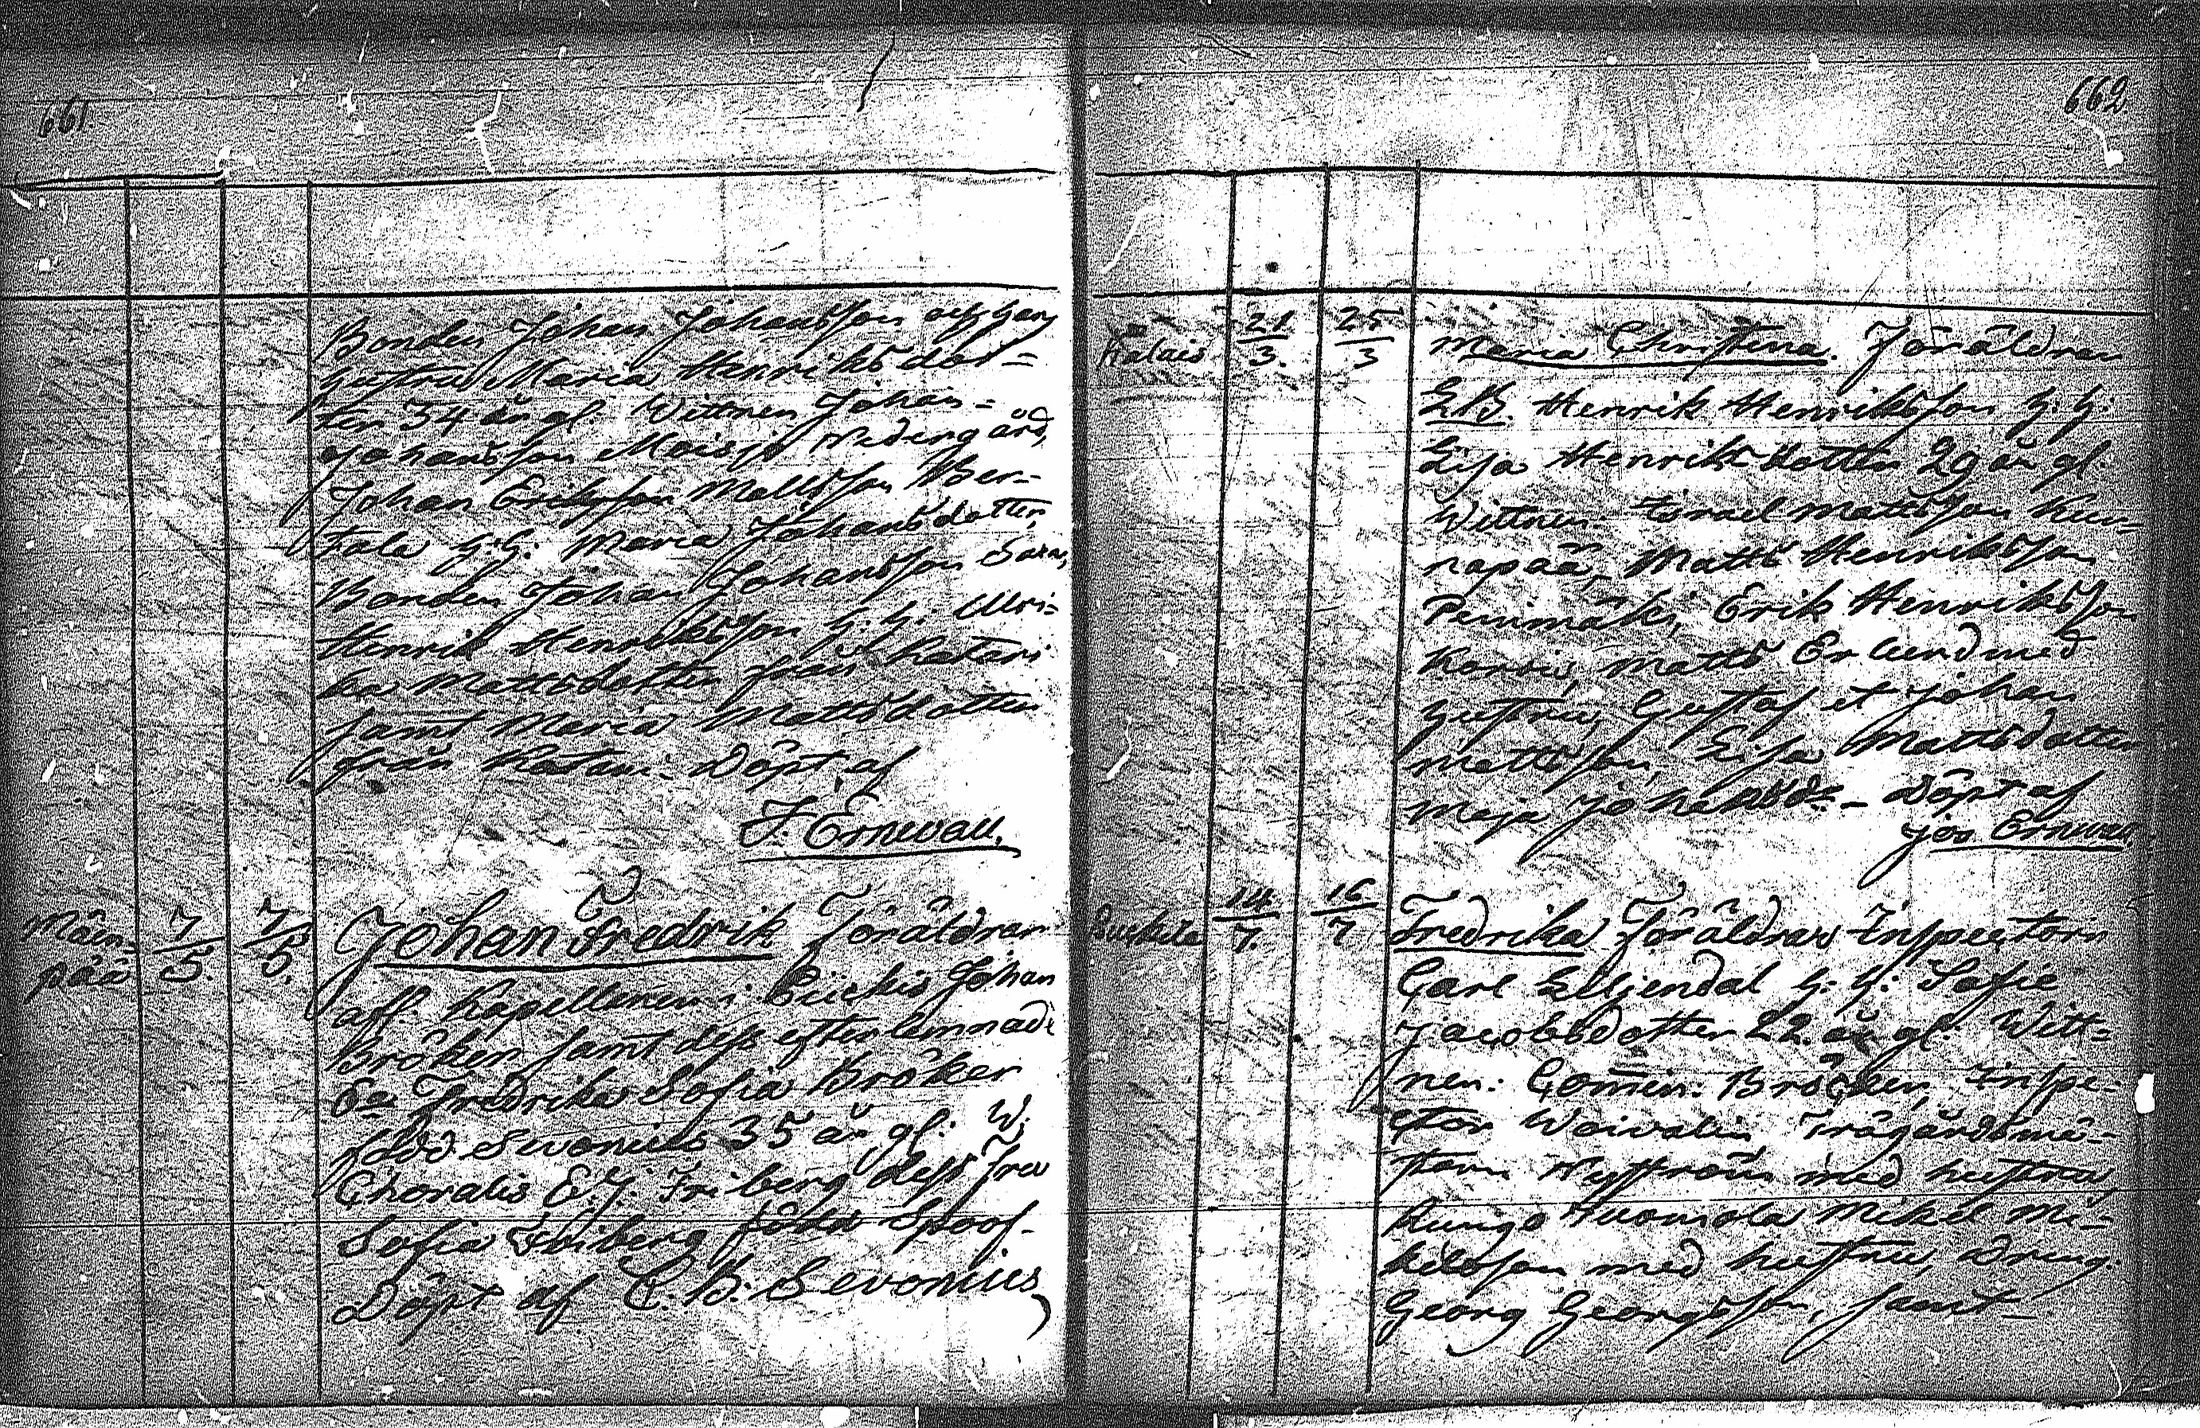 661.
Bonden Johan Johansson och hans
hustru Maria Henriksdot=
ter 34 år gl. Wittnen Johan=
Johansson Moisjo Nedengård,
Johan Eriksson Mattsson Ber-
tala h: h: Maria Johansdotter,
Bonden Johan Johansson
Henrik Henriksson h: h: Ulri=
ka Mattsdotter från Katari
samt Maria Mattsdotter
från Katari. Döpt af
J. Ernewall.
Mäen-
pää
7/5
7/5
Johan Fredrik Föräldrar
aff. Kapellanen i Johan
Bröker samt dess efterlemnade
Ea Fredrika Sofia Bröker
född Sevonius 35 år gl: W.
Choralis E. J. Friberg dess Fru
Sofia Friberg född Spoof-
Döpt af C. B. Sevonius
662
21/3.
25/3
Maria Christina. Föräldrar
Henrik Henriksson h: h:
Lisa Henriksdotter 29 år gl.
Wittnen Israel Mattsson Kur=
napää, Matts Henriksson
Penimäki, Erik Henriksson
Korsi, Matts Erlund med
hustru, Gustaf et Johan
Mattsson, Lisa Mattsdotter
Maja Johansdr - Döpt af
Jos Ernewall
14/7.
16/7
Fredrika Föräldrar Inspectorn
Carl Liljendal h: h: Sofie
Jacobsdotter 22 år gl: Witt=
nen: Comin: Bröcker, Inspe-
ctor Woivalin Trägårdsmä-
staren Nyström med hustru,
Tuomola Mikel Mi-
kelsson med hustru, dreng.
Georg Georgsson, samt